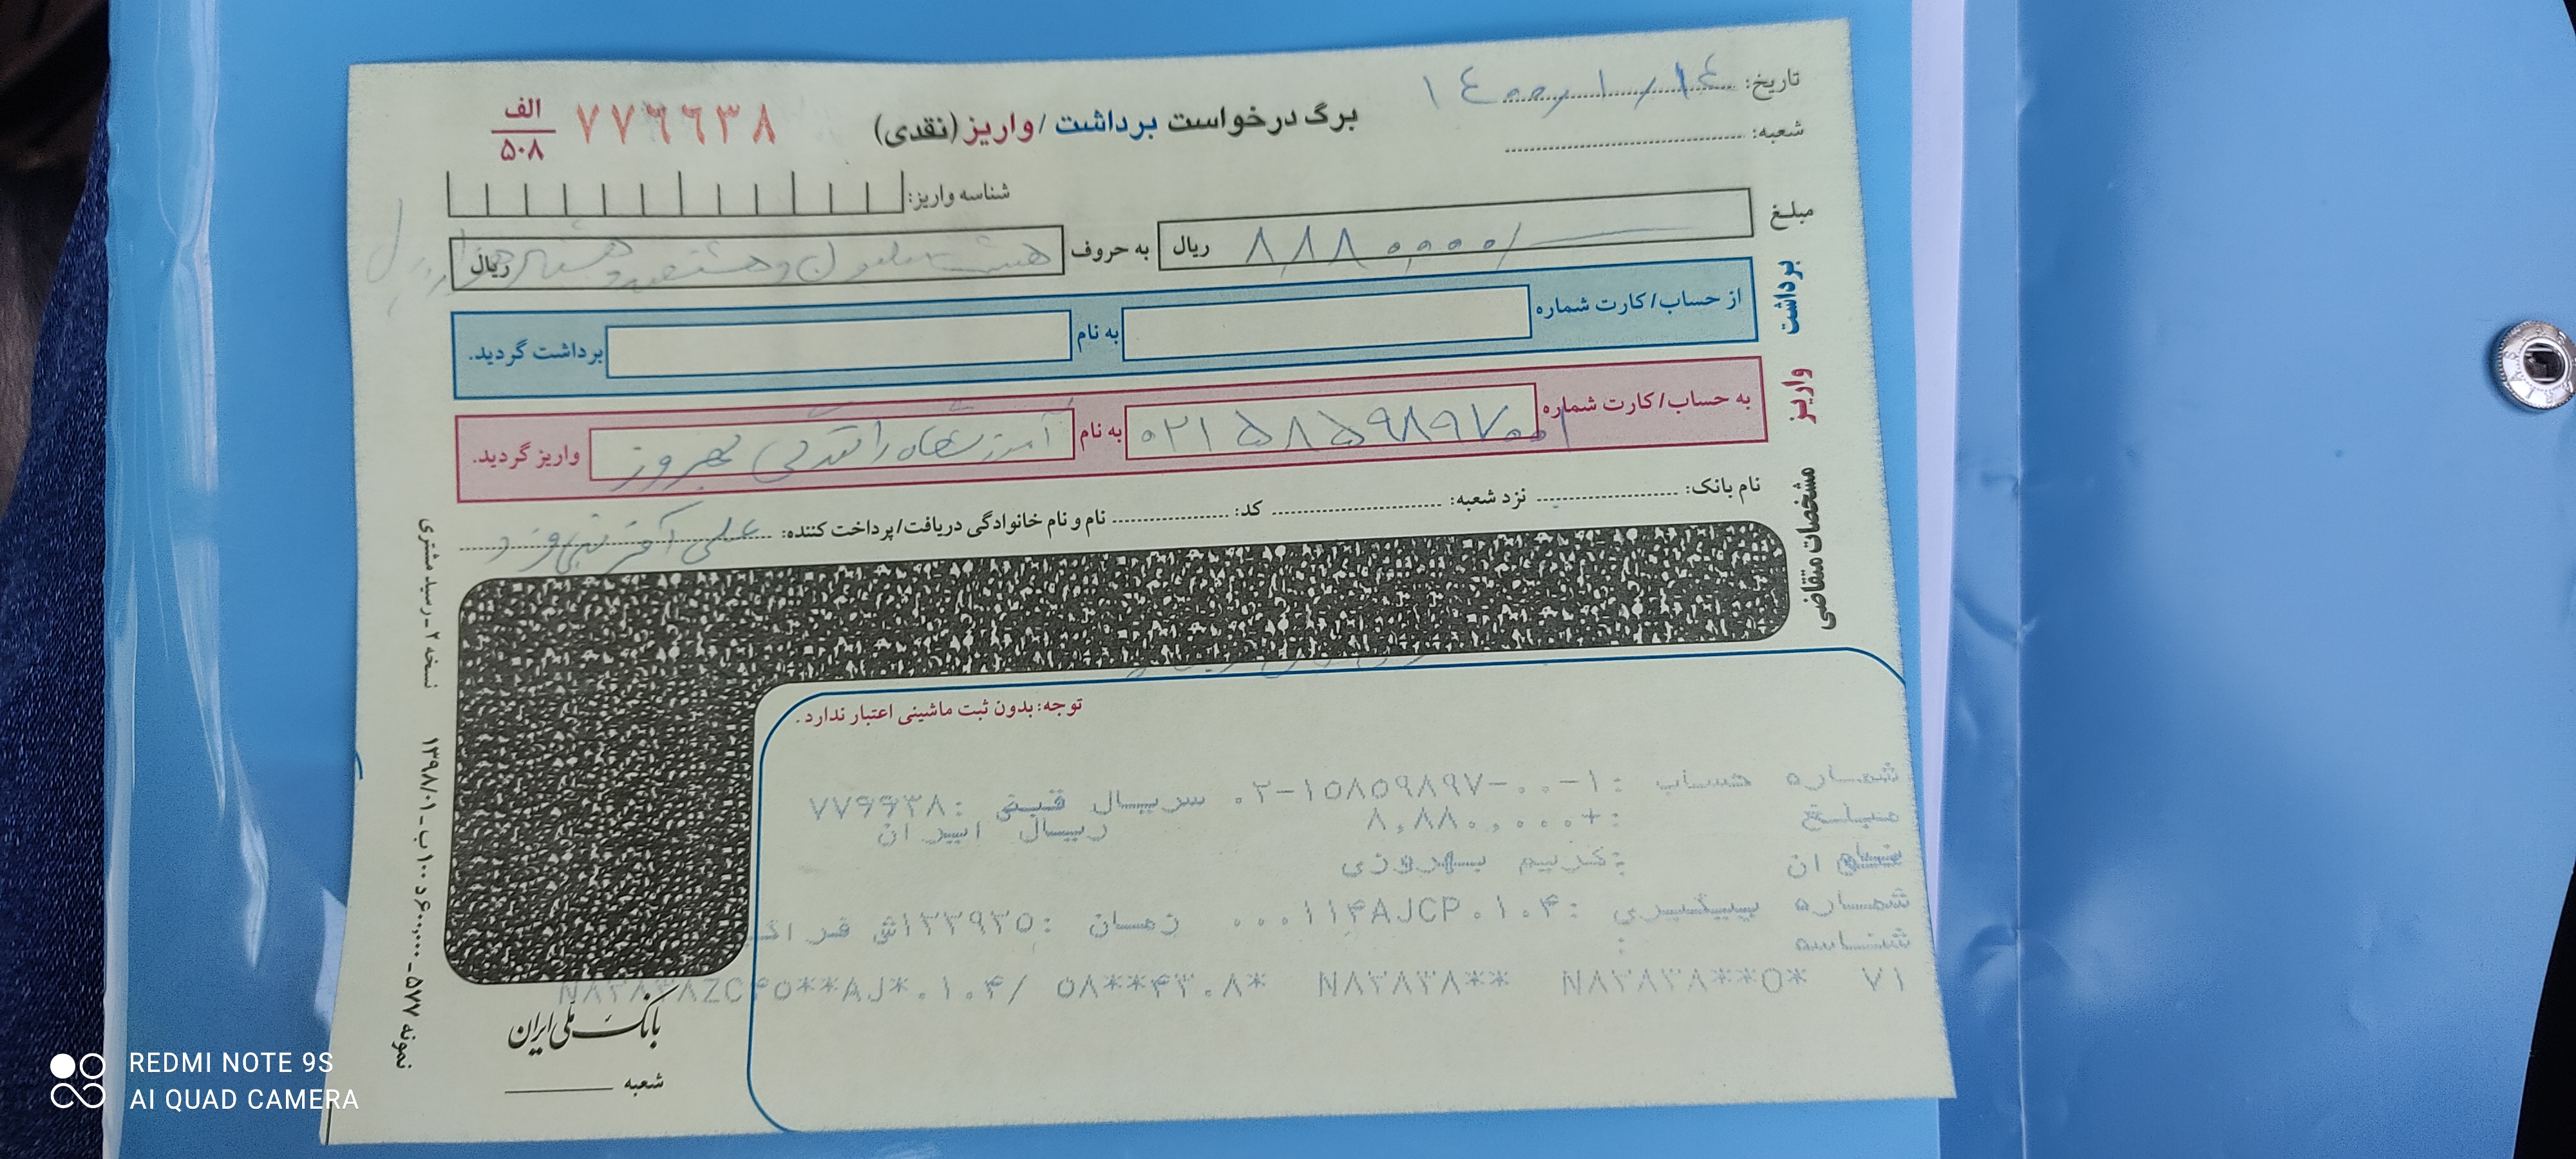 تاریخ: ۱۴۰۰/۱/۱۴
برگ درخواست برداشت/واریز (نقدی)
۷۷۶۶۳۸
الف
۵۰۸
شعبه:
شناسه واریز:
مبلغ ۸,۸۸۰,۰۰۰/ ریال به حروف هشت میلیون و هشتصد و هشتاد هزار ریال ریال
برداشت
از حساب/کارت شماره به نام برداشت گردید.
واریز
به حساب/کارت شماره ۰۲۱۵۸۵۹۸۹۷۰۰۱ به نام آموزشگاه رانندگی بهروز واریز گردید.
مشخصات متقاضی
نام بانک: نزد شعبه: کد: نام و نام خانوادگی دریافت/پرداخت کننده: علی
توجه: بدون ثبت ماشینی اعتبار ندارد.
شماره حساب :۰۲-۱۵۸۵۹۸۹۷-۰۰-۱ سریال قبض :۷۷۶۶۳۸
مبلغ :+۸,۸۸۰,۰۰۰ ریال ایران
:کریم بهروزی
شماره پیگیری :۰۰۰۱۱۴AJCP۰۱۰۴ زمان :۱۳۳۹۳۵
شناسه :
۷۱ N۸۳۸۳۸**۵* N۸۳۸۳۸** ۵۸**۴۳۰۸*
بانک ملی ایران
شعبه
نسخه ۲ ـ رسید مشتری
نمونه ۵۷۷ ـ ۶۰۰,۰۰۰ د ۱۰۰ ب ـ ۱۳۹۸/۰۱
REDMI NOTE 9S
AI QUAD CAMERA